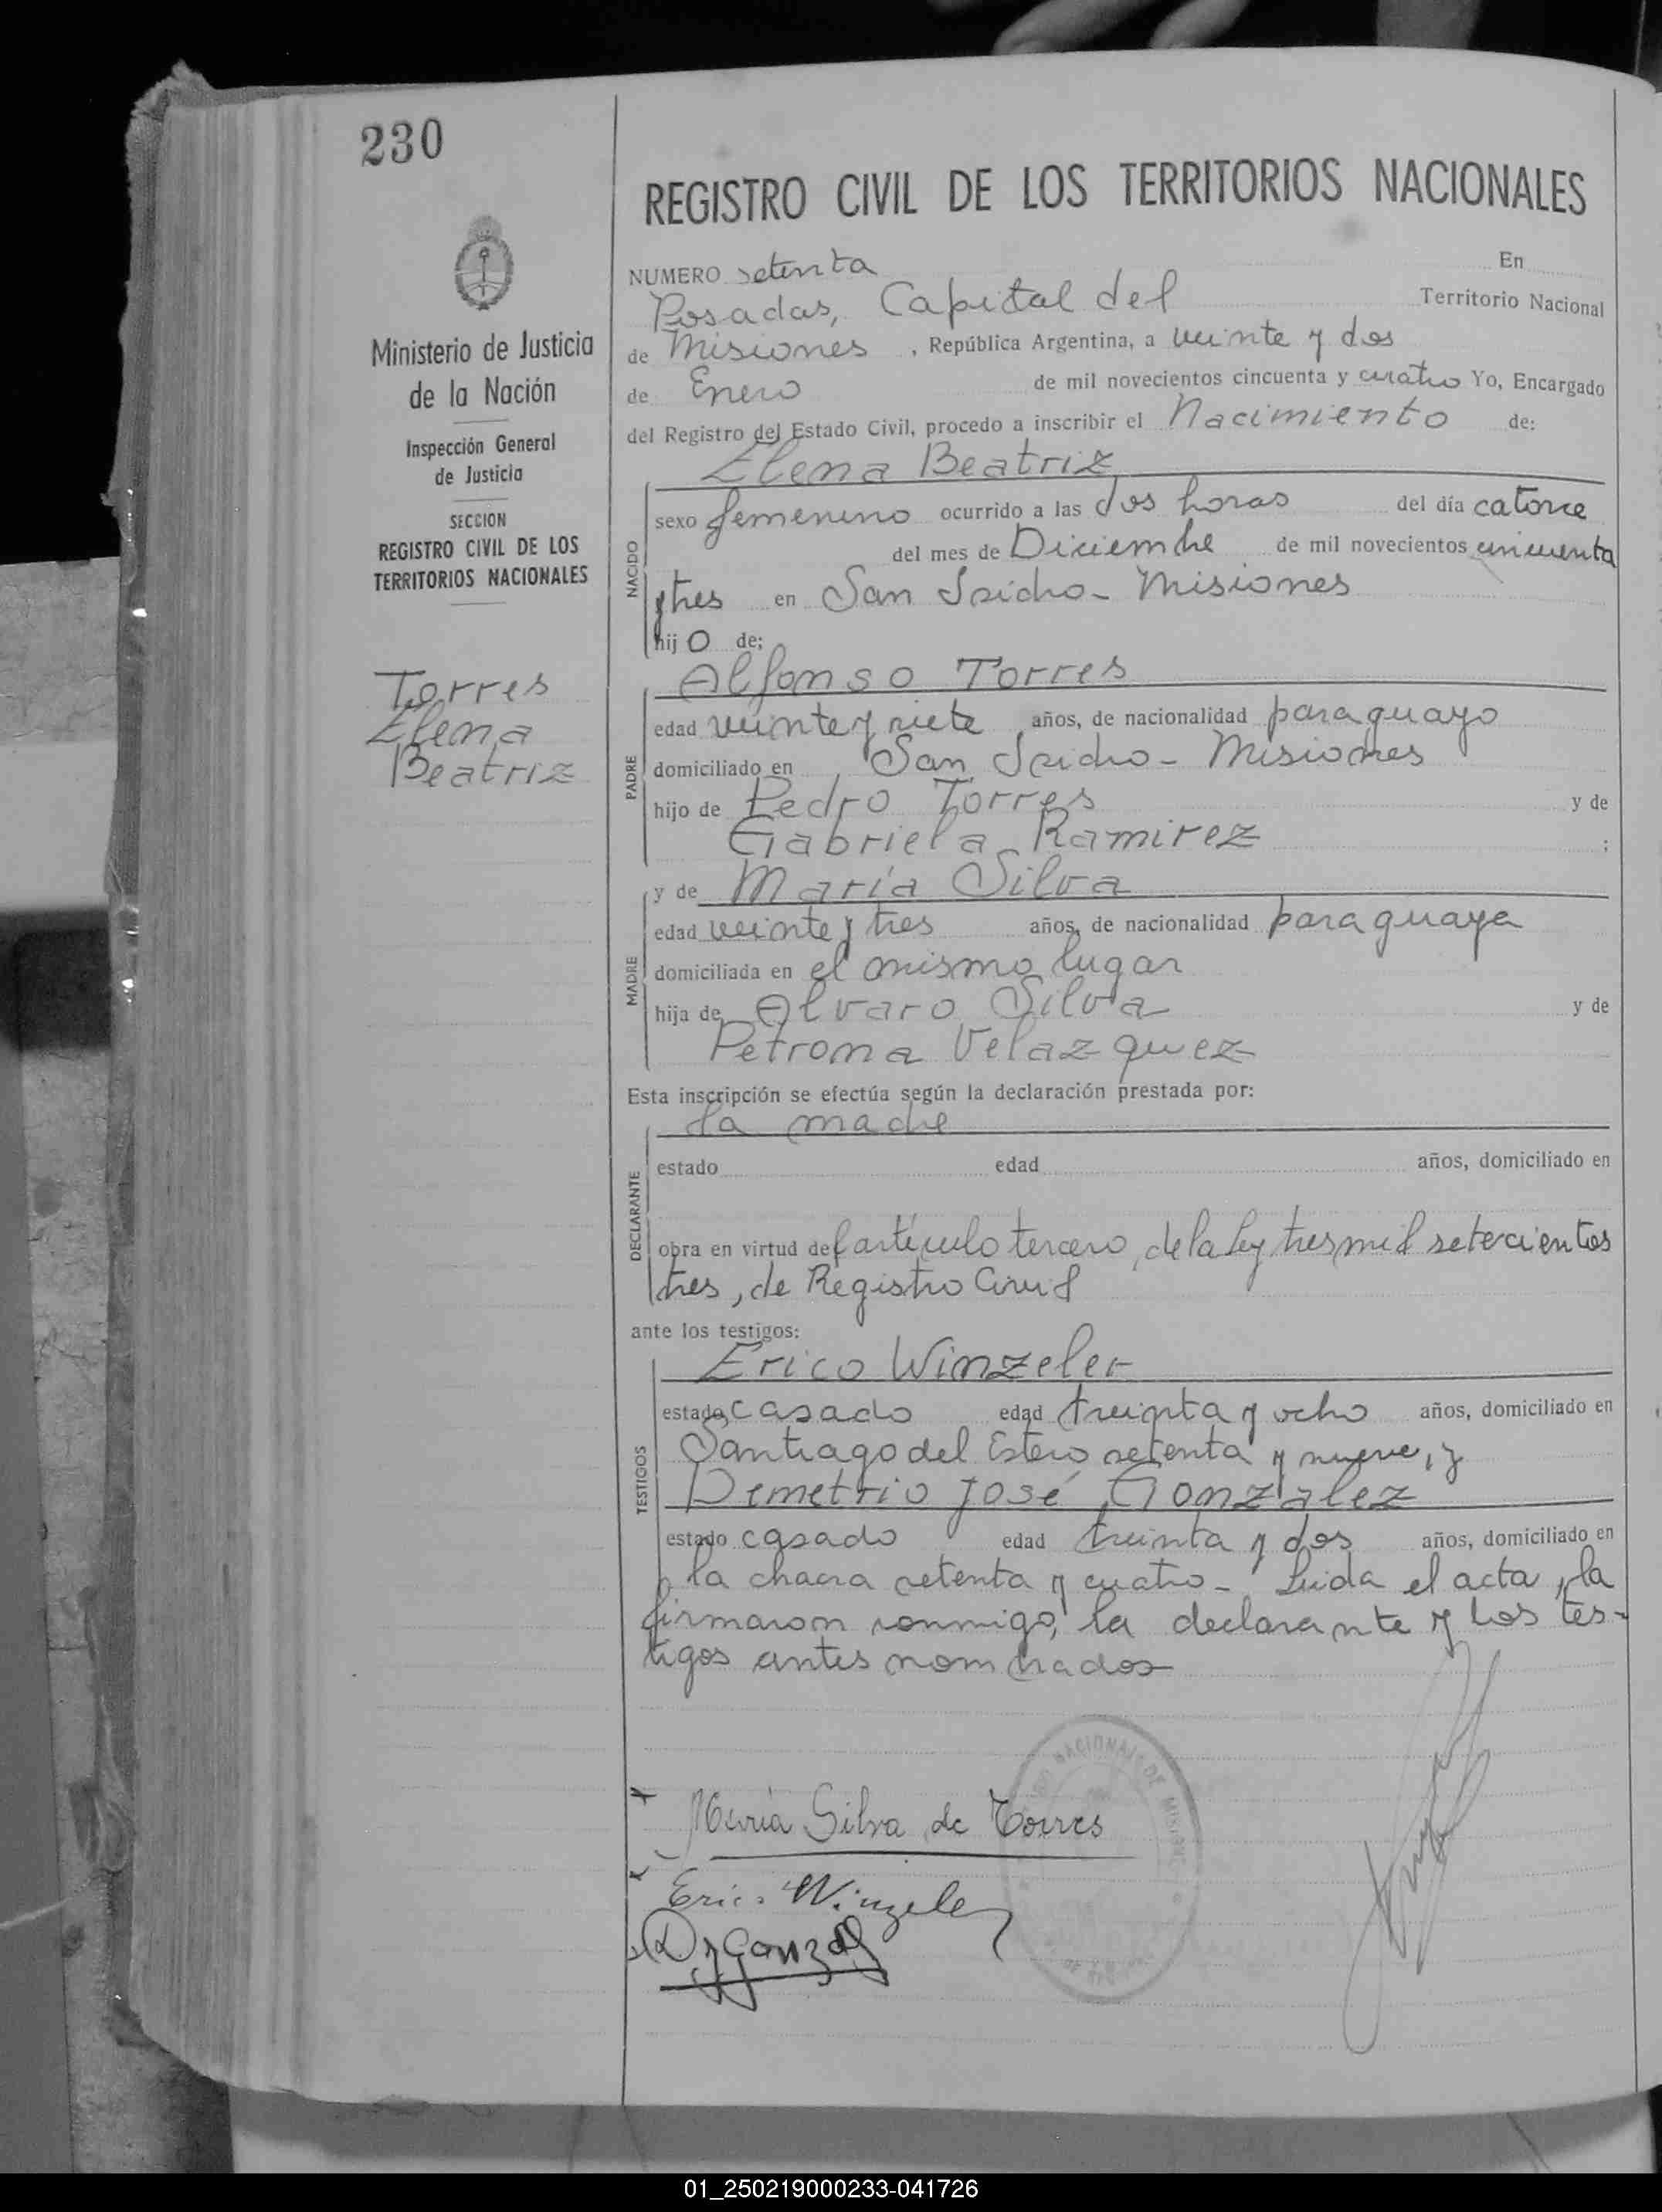 230
Ministerio de Justicia
de la Nación
Inspección General
de Justicia
SECCION
REGISTRO CIVIL DE LOS
TERRITORIOS NACIONALES
Torres
Elena
Beatriz
REGISTRO CIVIL DE LOS TERRITORIOS NACIONALES
NUMERO setenta En
Posadas, Capital del Territorio Nacional
de Misiones, República Argentina, a veinte y dos
de Enero de mil novecientos cincuenta y cuatro Yo, Encargado
del Registro del Estado Civil, procedo a inscribir el Nacimiento de:
Elena Beatriz
NACIDO
sexo femenino ocurrido a las dos horas del día catorce
del mes de Diciembre de mil novecientos cincuenta
y tres en San Isidro - Misiones
hijo de:
Alfonso Torres
PADRE
edad veinte y siete años, de nacionalidad paraguayo
domiciliado en San Isidro - Misiones
hijo de Pedro Torres y de
Gabriela Ramirez ;
y de María Silva
MADRE
edad veinte y tres años, de nacionalidad paraguaya
domiciliada en el mismo lugar
hija de Alvaro Silva y de
Petrona Velazquez
Esta inscripción se efectúa según la declaración prestada por:
la madre
DECLARANTE
estado edad años, domiciliado en
obra en virtud del artículo tercero, de la Ley tres mil setecientos
tres, de Registro Civil
ante los testigos:
Erico Winzeler
TESTIGOS
estado casado edad treinta y ocho años, domiciliado en
Santiago del Estero setenta y nueve, y
Demetrio José Gonzalez
estado casado edad treinta y dos años, domiciliado en
la chacra setenta y cuatro - Leida el acta, la
firmaron conmigo, la declarante y los tes-
tigos antes nombrados
María Silva de Torres
Erico Winzeler
D J Gonzalez
NACIONALES DE MISIONES
01_250219000233-041726